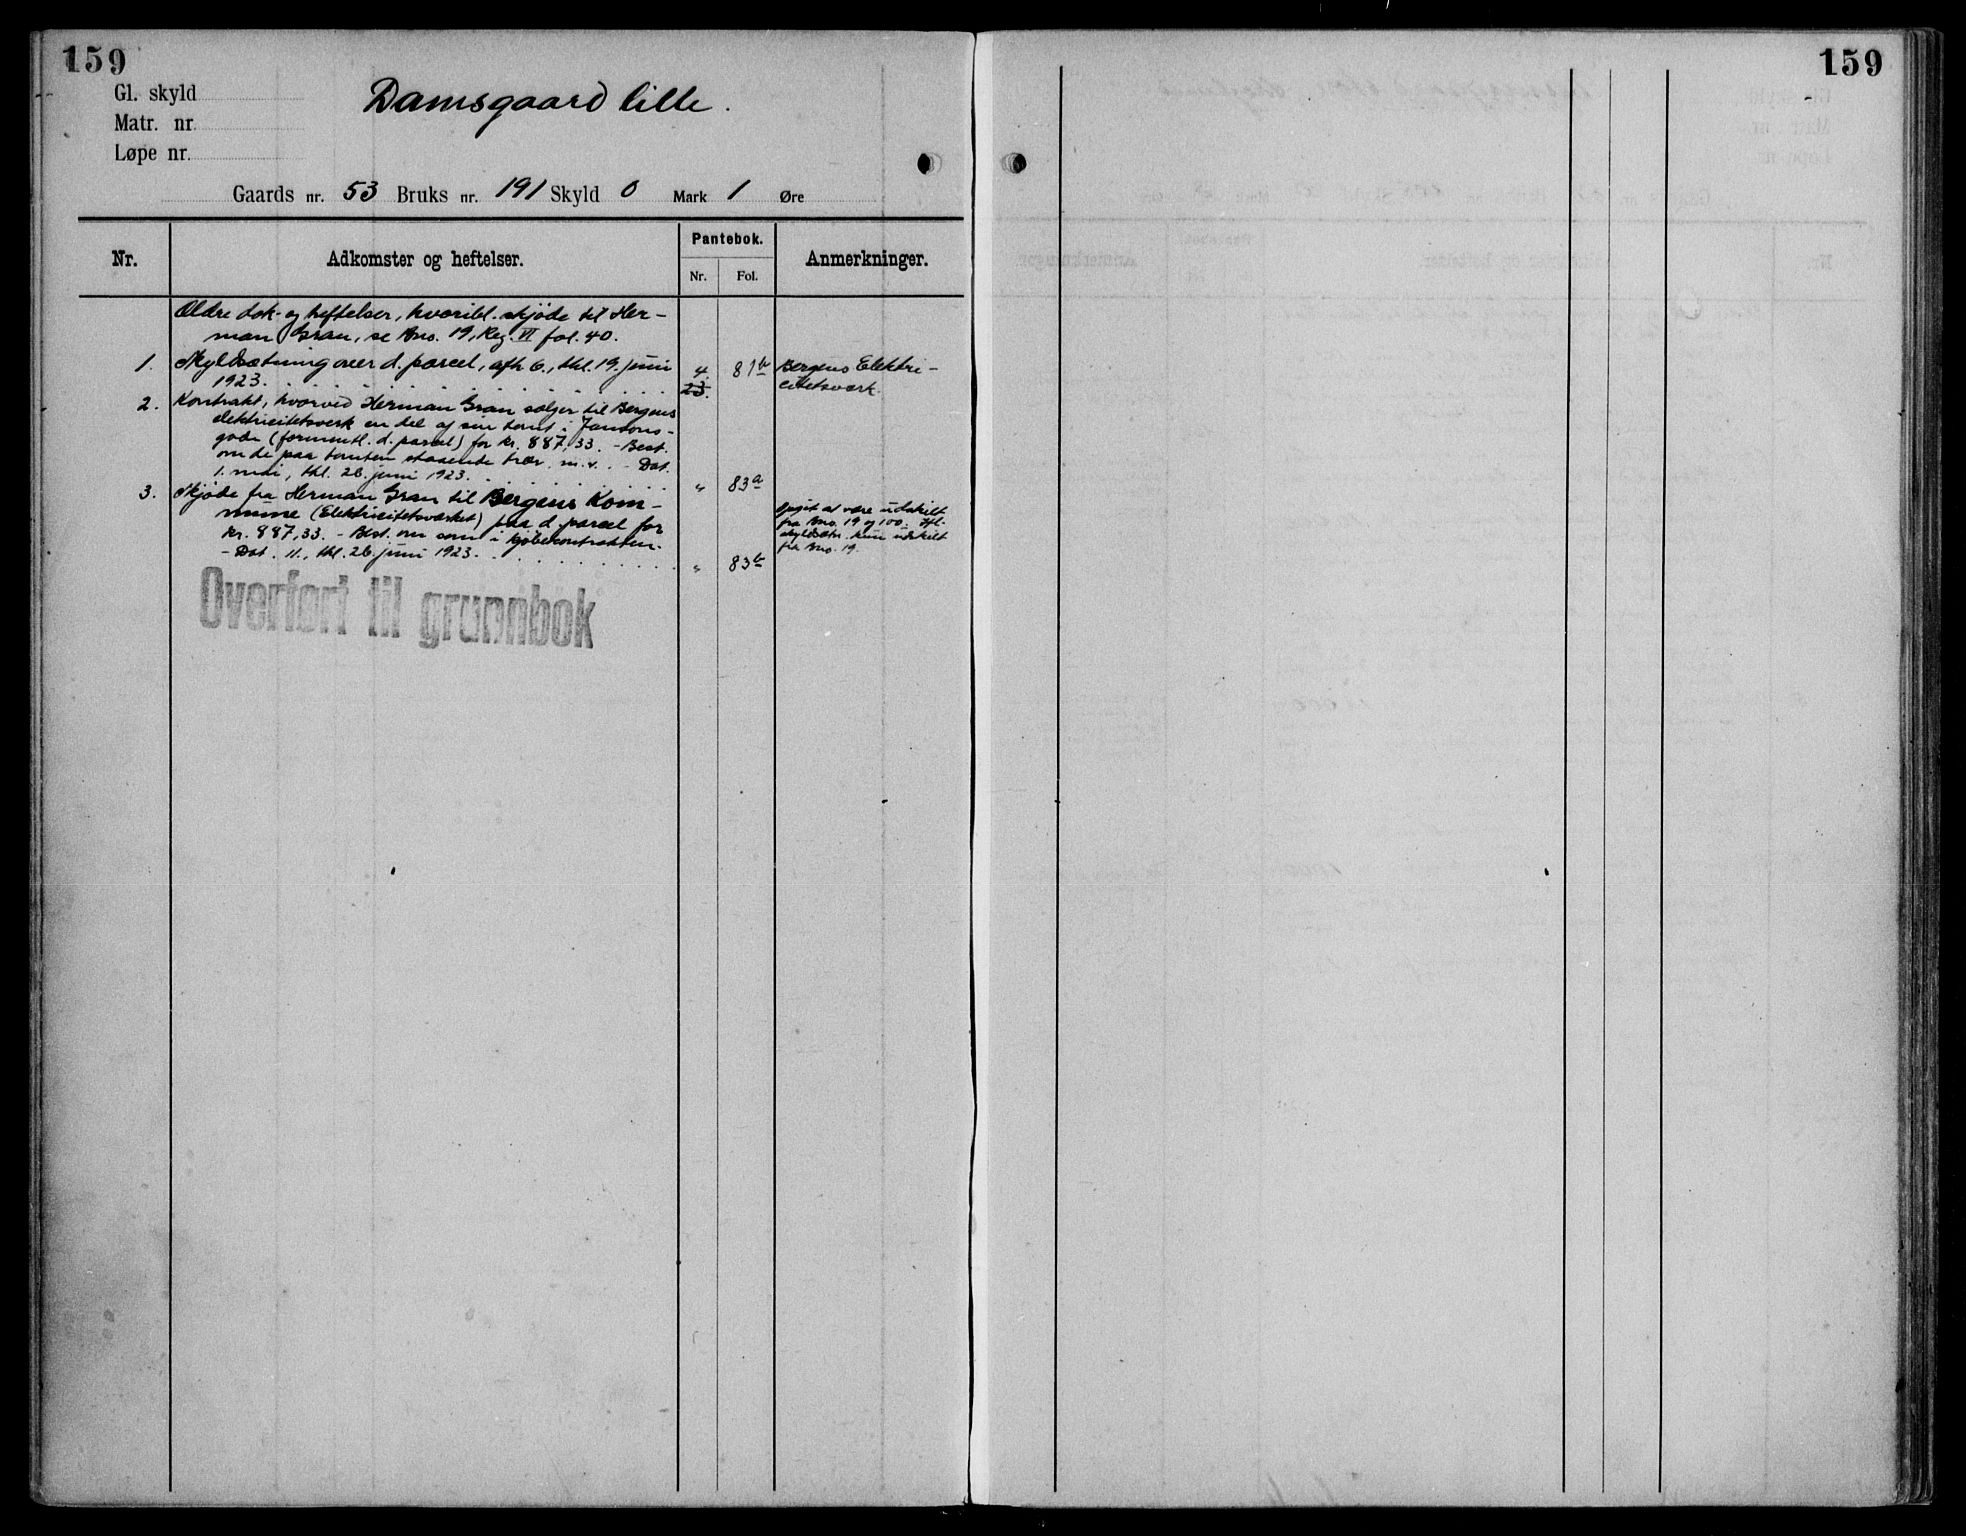 159
Gl. skyld
Matr. nr.
Løpe nr.
Damsgaard lille.
Gaards nr. 53 Bruks nr. 191 Skyld 0 Mark 1 Øre
Nr.
Adkomster og heftelser.
Pantebok.
Nr.
Fol.
Anmerkninger.
Ældre dok- og heftelser, hvoribl. skjøde til Her-
man Gran, se Bno. 19, Reg. VI fol. 40.
1. Skyldsætning over d. parcel, afh 6., thl. 19. juni
1923. 4. 23. 81b
Bergens Elektri-
citetsværk.
2. Kontrakt, hvorved Herman Gran sælger til Bergens
elektricitetsverk en del af sin tomt i Jansons-
gade (formentl. d. parcel) for kr. 887,33. - Best.
om de paa tomten staaende trær m. v. - Dat.
1. mai, thl. 26. juni 1923. " 83a
3. Skjøde fra Herman Gran til Bergens Kom-
mune (Elektricitetsværket) paa d. parcel for
kr. 887,33. - Best. om som i kjøbecontrakten.
- Dat. 11., thl. 26. juni 1923. " 83b
Opgit at være utskilt
fra Bno. 19 og 100. Hl.
skyldsætn. kun utskilt
fra Bno. 19.
Overført til grunnbok
159